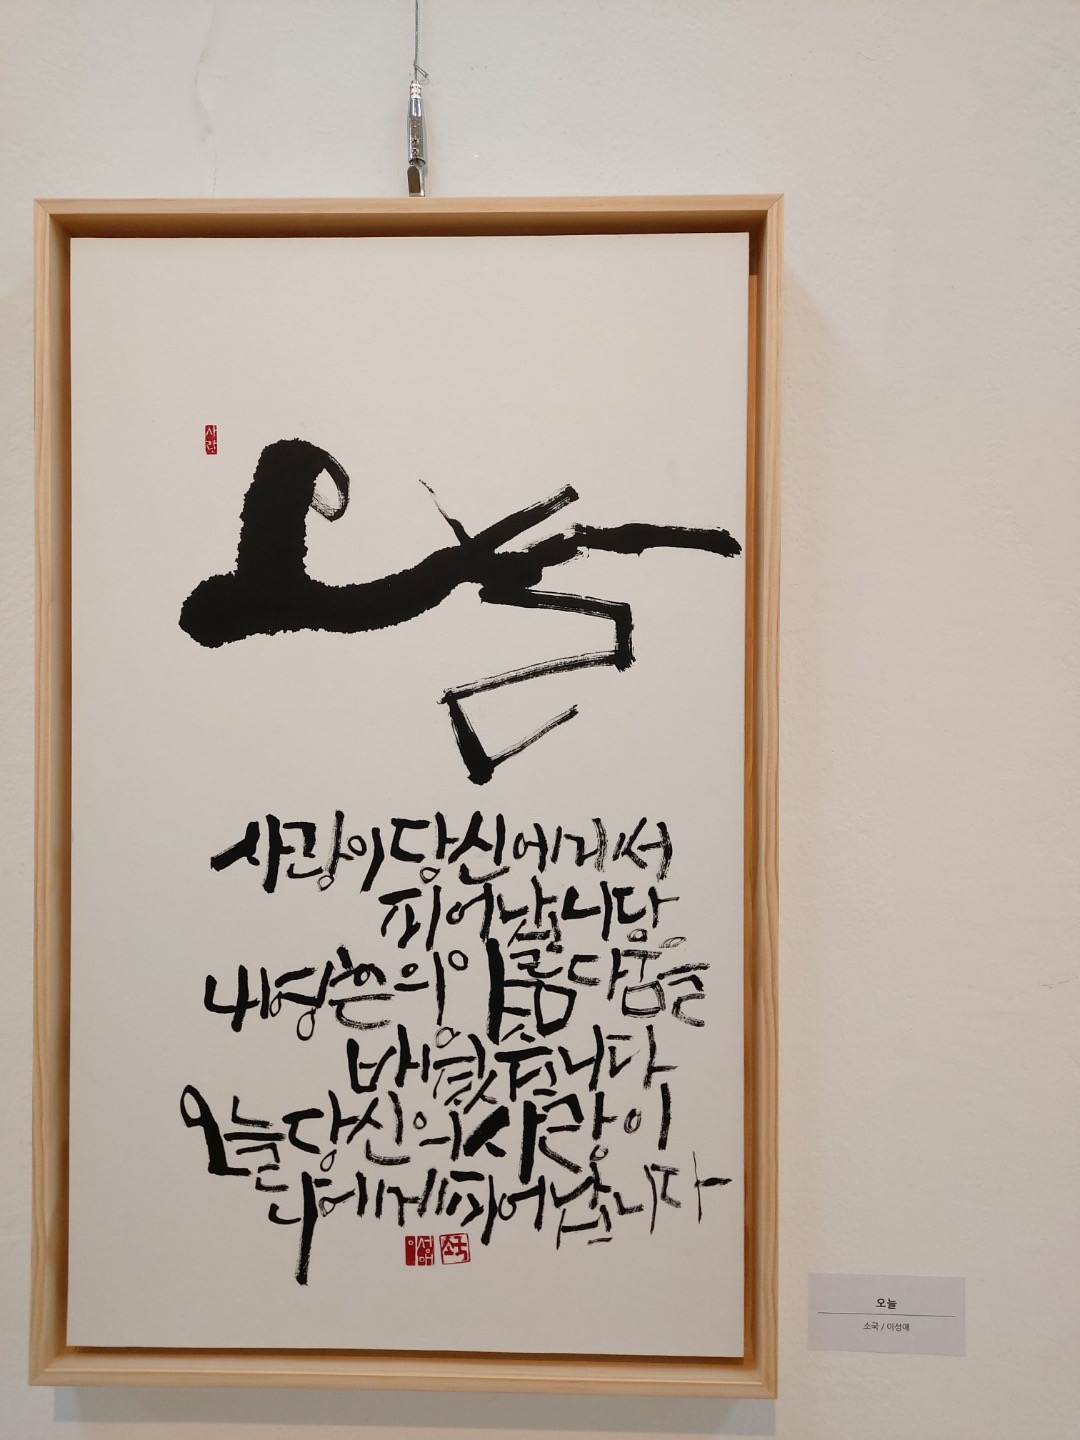 사랑
오늘
사랑이 당신에게서
피어납니다
내 영혼의 아름다움을
배웠습니다
오늘 당신의 사랑이
나에게 피어납니다
이성애 소국
오늘
소국 / 이성애